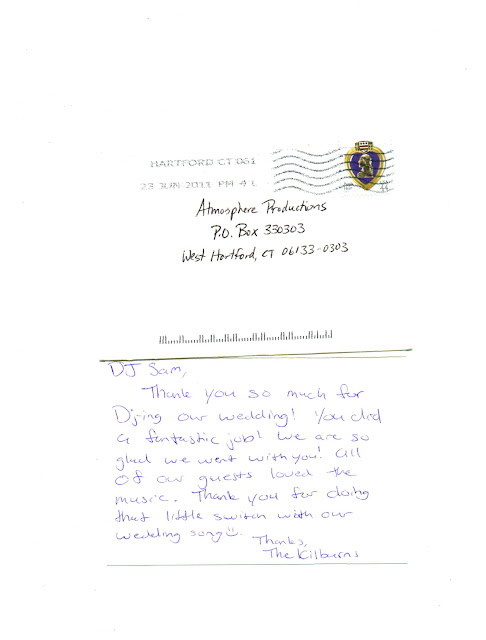 HARTFORD CT 061
23 JUN 2011 PM 4 L
44
Atmosphere Productions
P.O. Box 330303
West Hartford, CT 06133-0303
DJ Sam,
Thank you so much for
Djing our wedding! You did
a fantastic job! We are so
glad we went with you! All
of our guests loved the
music. Thank you for doing
that little switch with our
wedding song☺.
Thanks,
The Kilburns